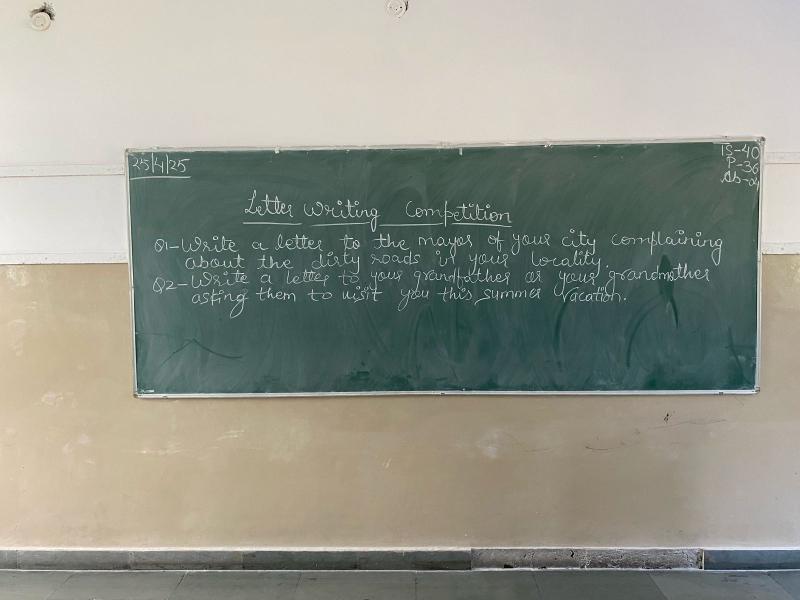 25/4/25
TS-40
P-36
Ab-04
Letter Writing Competition
Q1-Write a letter to the mayor of your city complaining
about the dirty roads in your locality.
Q2-Write a letter to your grandfather or your grandmother
asking them to visit you this summer vacation.